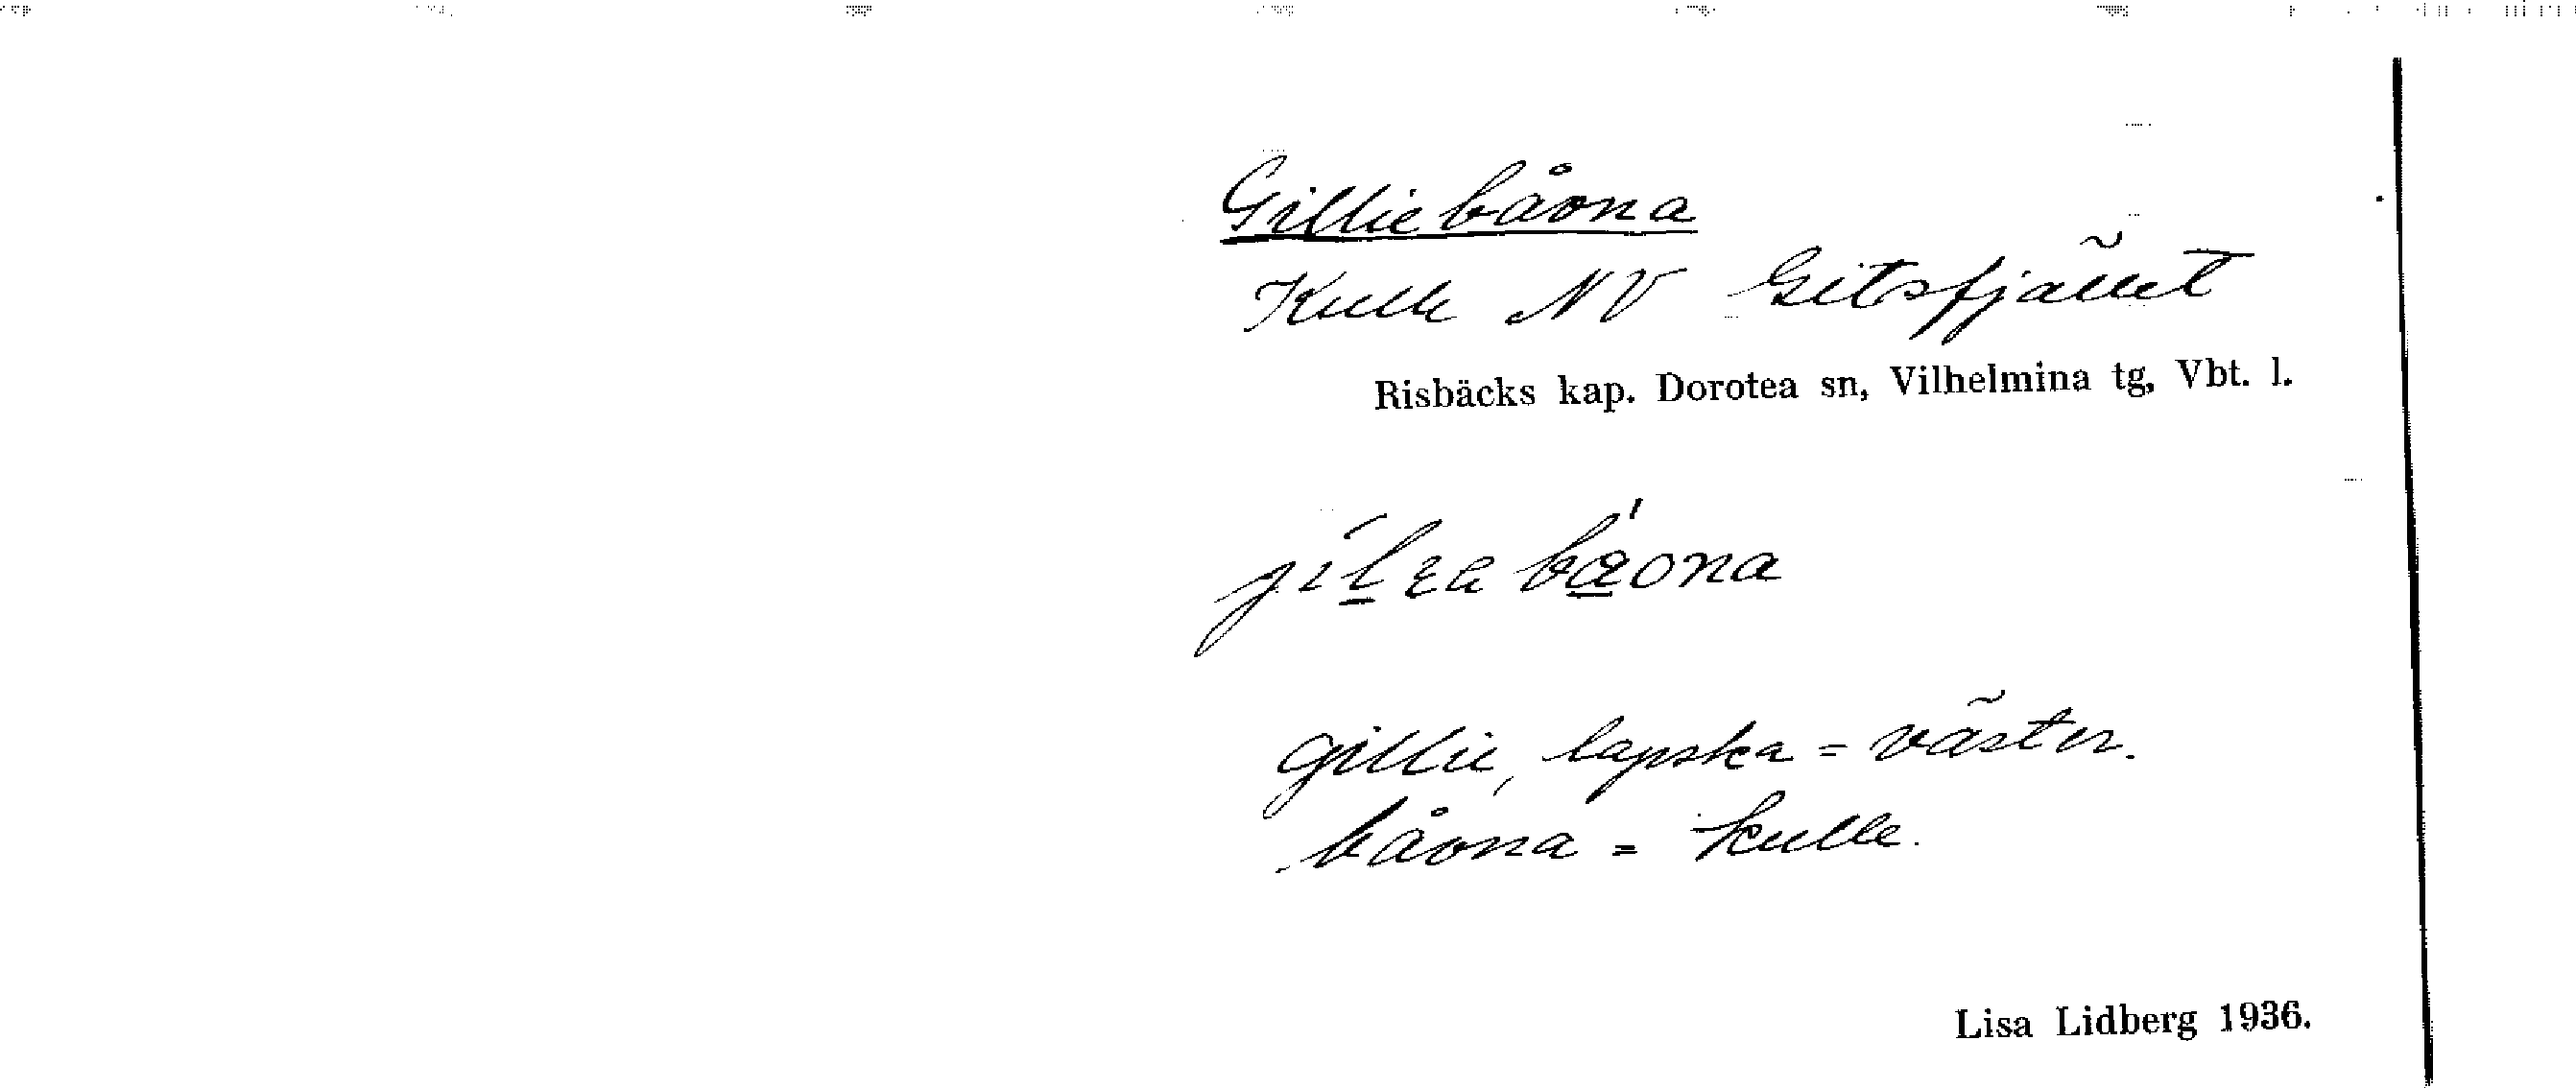 Gilliebåona
Kulle NV Gitsfjället
Risbäcks kap. Dorotea sn, Vilhelmina tg, Vbt. l.
gillie, lapska = väster.
båona = kulle.
Lisa Lidberg 1936.